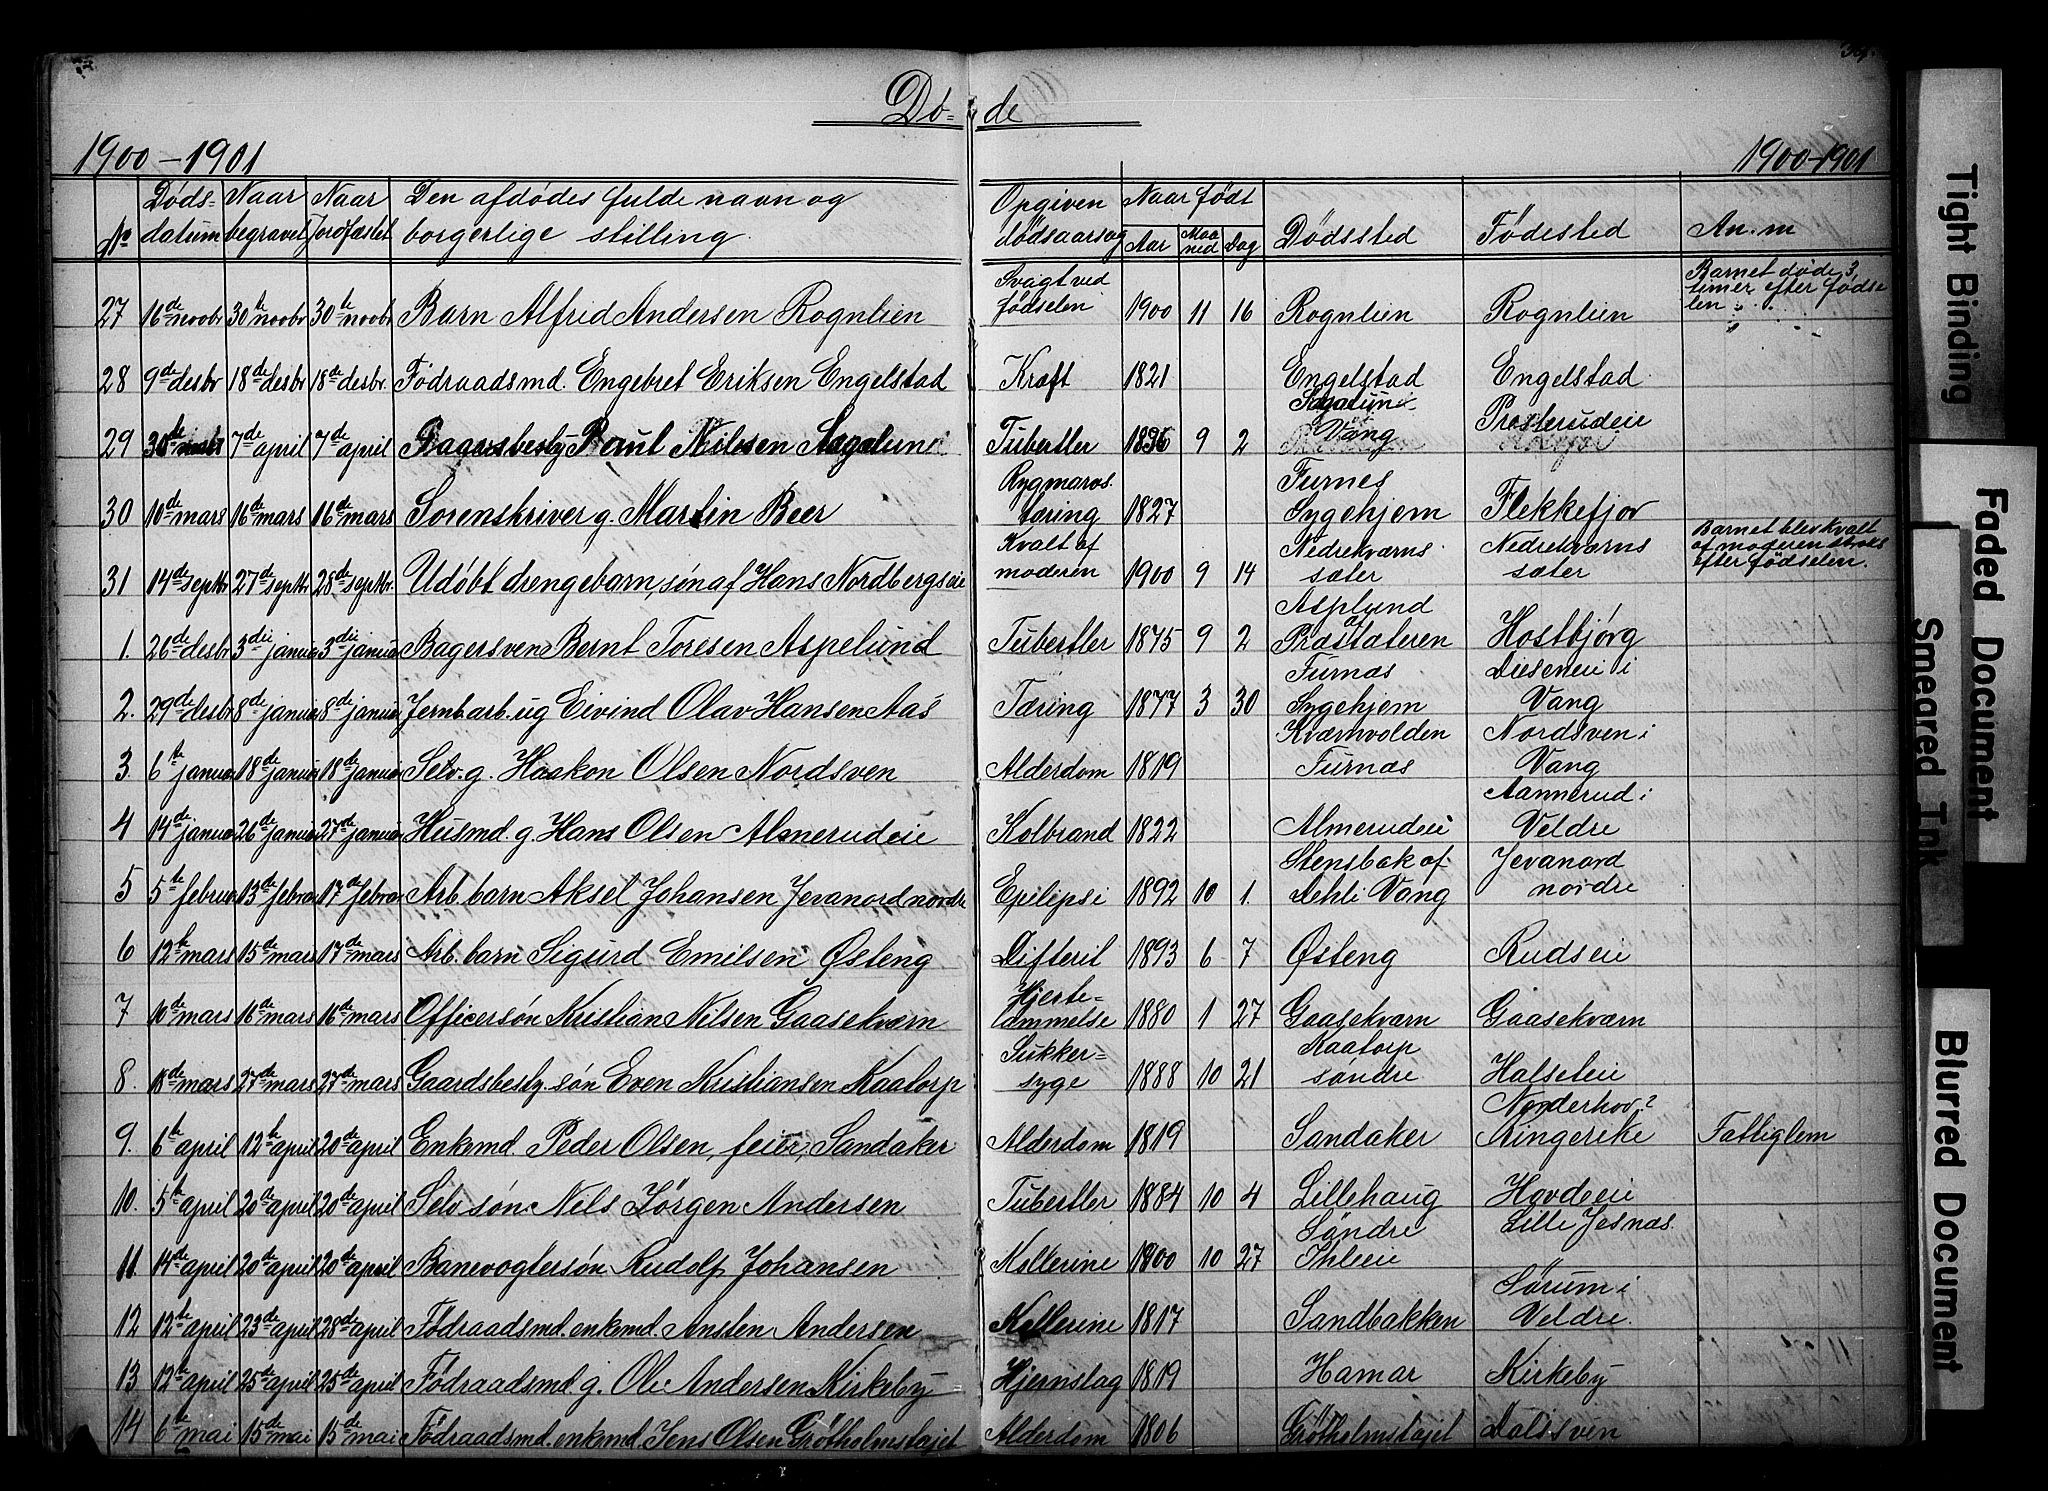 Dö- de
1900-1901 1900-1901
No Döds- datum Naar begravet Naar Jordfæstet Den afdödes fulde navn og borgerlige stilling Opgiven dödsaarsag Naar födt Aar Maaned Dag Dödssted Födested An.m
27 16de novbr 30te novbr 30te novbr Barn Alfred Andersen Rognlien Svagt ved födselen 1900 11 16 Rognlien Rognlien Barnet döde 3 timer efter födselen
28 9de desbr 18de desbr 18de desbr. Födraadsmd. Engebret Eriksen Engelstad Kræft 1821 Engelstad Engelstad
29 7de april 7de april Paul Nilssen Sagelund Tubertler 1836 9 2 Sagalund Vang Prosterudeie
30 10de mars 16de mars 16de mars Sorenskriver g. Martin Beer Rygmarvstæring 1827 Furnes Sygehjem Flekkefjor
31 14de septbr 27de septbr 28de septbr. Udöbt drengebarn, sön af Hans Nordbergseie Kvalt af moderen 1900 9 14 Nedrekværnssæter Nedrekværnssæter Barnet blev kvalt af moderen straks efter födselen.
1. 26de desbr 3die januar 3die januar Bagersven Bernt Toresen Aspelund Tubertler 1875 9 2 Asplund af Præstæteren Hostbjörg
2. 29de desbr 8de januar 8de januar Jernb.arb. ug Eivind Olav Hansen Aas Tæring 1877 3 30 Furnæs Sygehjem Dieseneie i Vang
3. 6te januar 18de januar 18de januar Selv. g. Haakon Olsen Nordsven Alderdom 1819 Kværnvolden Furnæs Nordsven i Vang
4 14de januar 26de januar 27de januar Husmd. g Hans Olsen Almerudeie Kolbrand 1822 Almerudeie Aannerud i Veldre
5 5te februar 13de febrar 17de febrar Arb. barn Aksel Johansen Jevanord nordre Epilepsi 1892 10 1. Stensbak af Aehli Vang Jevanord nordre
6 12te mars 15de mars 17de mars Arb. barn Sigurd Emilsen Östeng Difterit 1893 6 7 Östeng Rudseie
7 10de mars 16de mars 16de mars Officersön Kristian Nilsen Gaasekværn Hjerte-lammelse 1880 1 27 Gaasekværn Gaasekværn
8. 18de mars 27de mars 27de mars Gaardsbesty. sön Even Kristiansen Kaatorp Sukker-syge 1888 10 21 Kaatorp söndre Halseteie
9. 6te april 12te april 20de april Enkemd. Peder Olsen, feier, Sandaker Alderdom 1819 Sandaker Norderhov? Ringerike Fattiglem
10. 5te april 20de april 20de april Selv sön Nels Jörgen Andersen Tubertler 1884 10 4 Lillehaug Hovdeie
11 14de april 20de april 20de april Banevogtersön Rudolf Johansen Kellerine 1900 10 27 Söndre Ihleeie Lille Jesnæs
12 12te april 23de april 28de april Födraadsmd. enkemd. Ansten Andersen Kellerine 1817 Sandbakken Sörum i Veldre.
13 12te april 25de april 25de april Födraadsmd g. Ole Andersen Kirkeby Hjernslag 1819 Hamar Kirkeby
14 6te mai 15de mai 15de mai Födraadsmd. enkemd. Jens Olsen Grötholmstajet Alderdom 1806 Grötholmstajet Dalssven
Tight Binding
Faded Document
Smeared Ink
Blurred Document